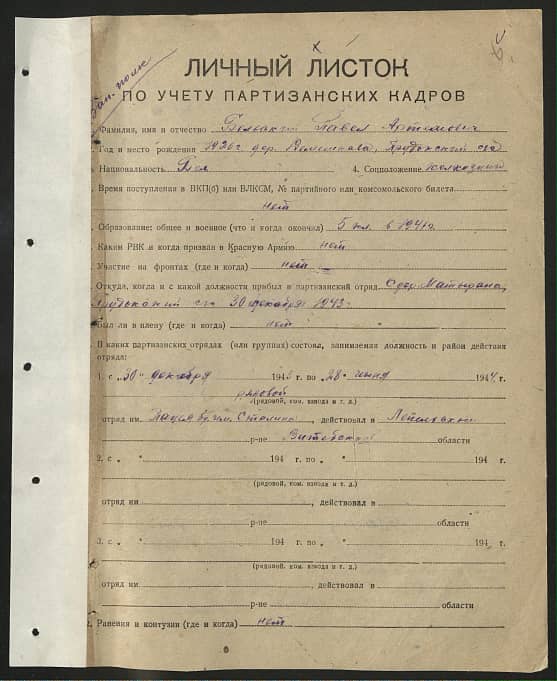 Зап. полк
ЛИЧНЫЙ ЛИСТОК
ПО УЧЕТУ ПАРТИЗАНСКИХ КАДРОВ
Фамилия, имя и отчество Павел Артимович
Год и место рождения 1926 г. дер.
Национальность Бел 4. Соцположение колхозник
Время поступления в ВКП(б) или ВЛКСМ, № партийного или комсомольского билета
нет
Образование: общее и военное (что и когда окончил) 5 кл. в 1941 г.
Каким РВК и когда призван в Красную Армию нет
Участие на фронтах (где и когда) нет
Откуда, когда и с какой должности прибыл в партизанский отряд С дер.
30 декабря 1943 г.
Был ли в плену (где и когда) нет
В каких партизанских отрядах (или группах) состоял, занимаемая должность и район действия
отряда:
1. с „30" декабря 1943 г. по „28" июня 1944 г.
рядовой
(рядовой, ком. взвода и т. д.)
отряд им. Сталина, действовал в Лепельском
р-не Витебской области
2. с „ " 194 г. по „ " 194 г.
(рядовой, ком. взвода и т. д.)
отряд им , действовал в
р-не области
3. с „ " 194 г. по „ " 194 г.
(рядовой, ком. взвода и т. д.)
отряд им , действовал в
р-не области
Ранения и контузии (где и когда) нет